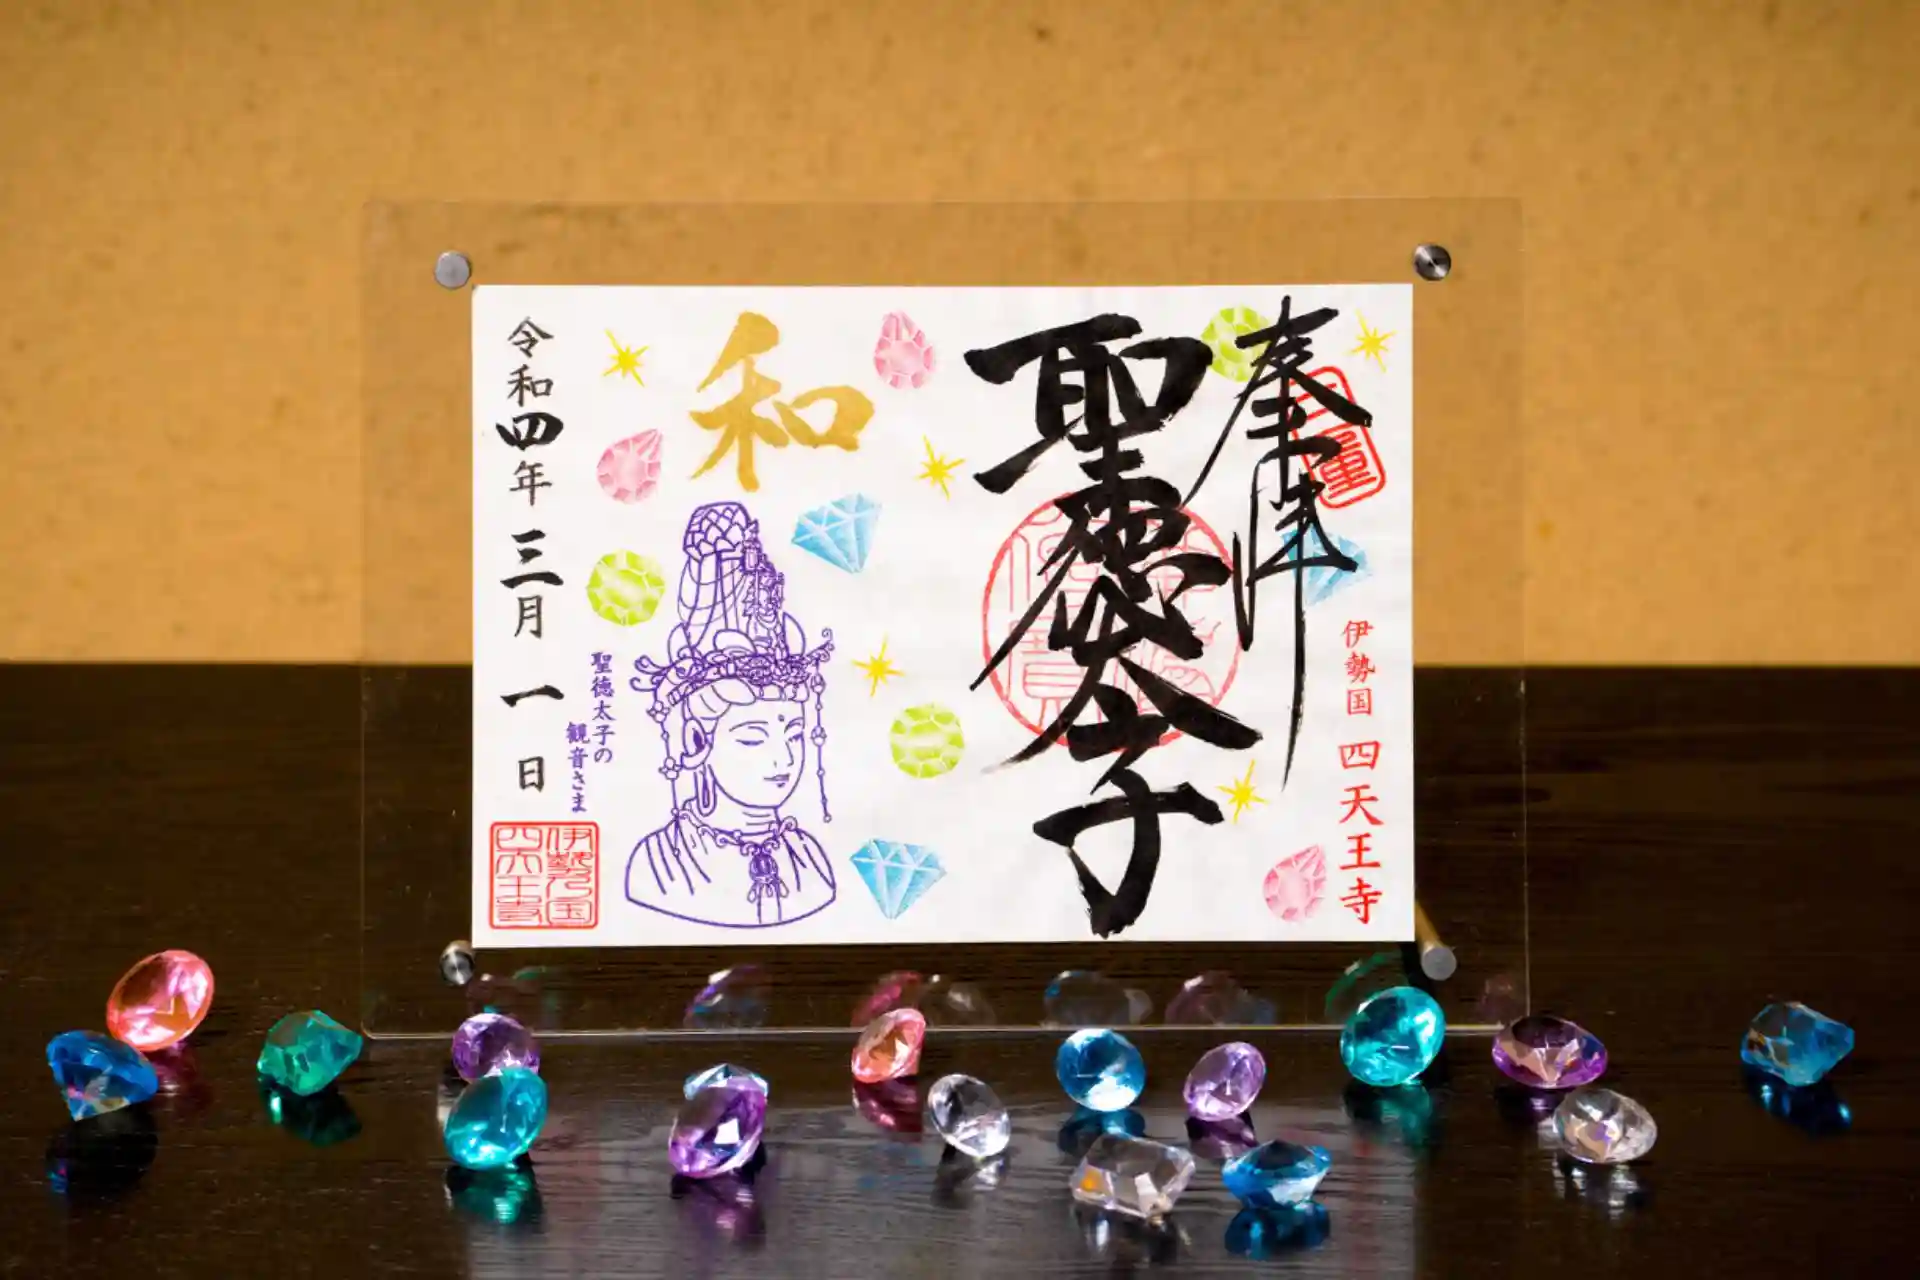 奉拝
聖徳太子
伊勢国 四天王寺
和
聖徳太子の
観音さま
令和四年 三月 一 日
伊勢国
四天王寺